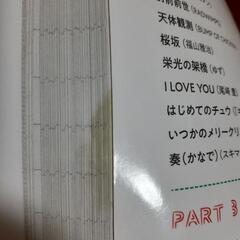 天体観測 (BUMP OF CHICKEN
桜坂 (福山雅治)
栄光の架橋 (ゆず)
I LOVE YOU (尾崎 豊)
はじめてのチュウ
いつかのメリーク
奏 (かなで) (スキマ
PART 3